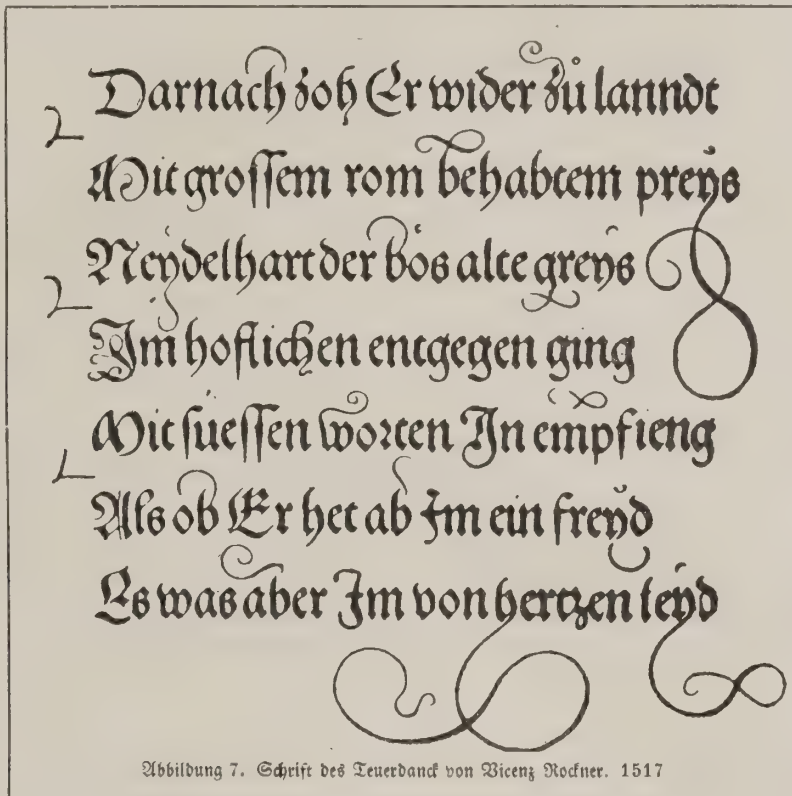 Darnach zoh Er wider zů lanndt
Mit grossem rom behabtem preÿs
Neÿdelhart der bös alte greÿs
Im hoflichen entgegen ging
Mit süessen worten In empfieng
Als ob Er het ab Im ein freÿd
Es was aber Im von hertzen leÿd
Abbildung 7. Schrift des Teuerdanck von Vicenz Rockner. 1517